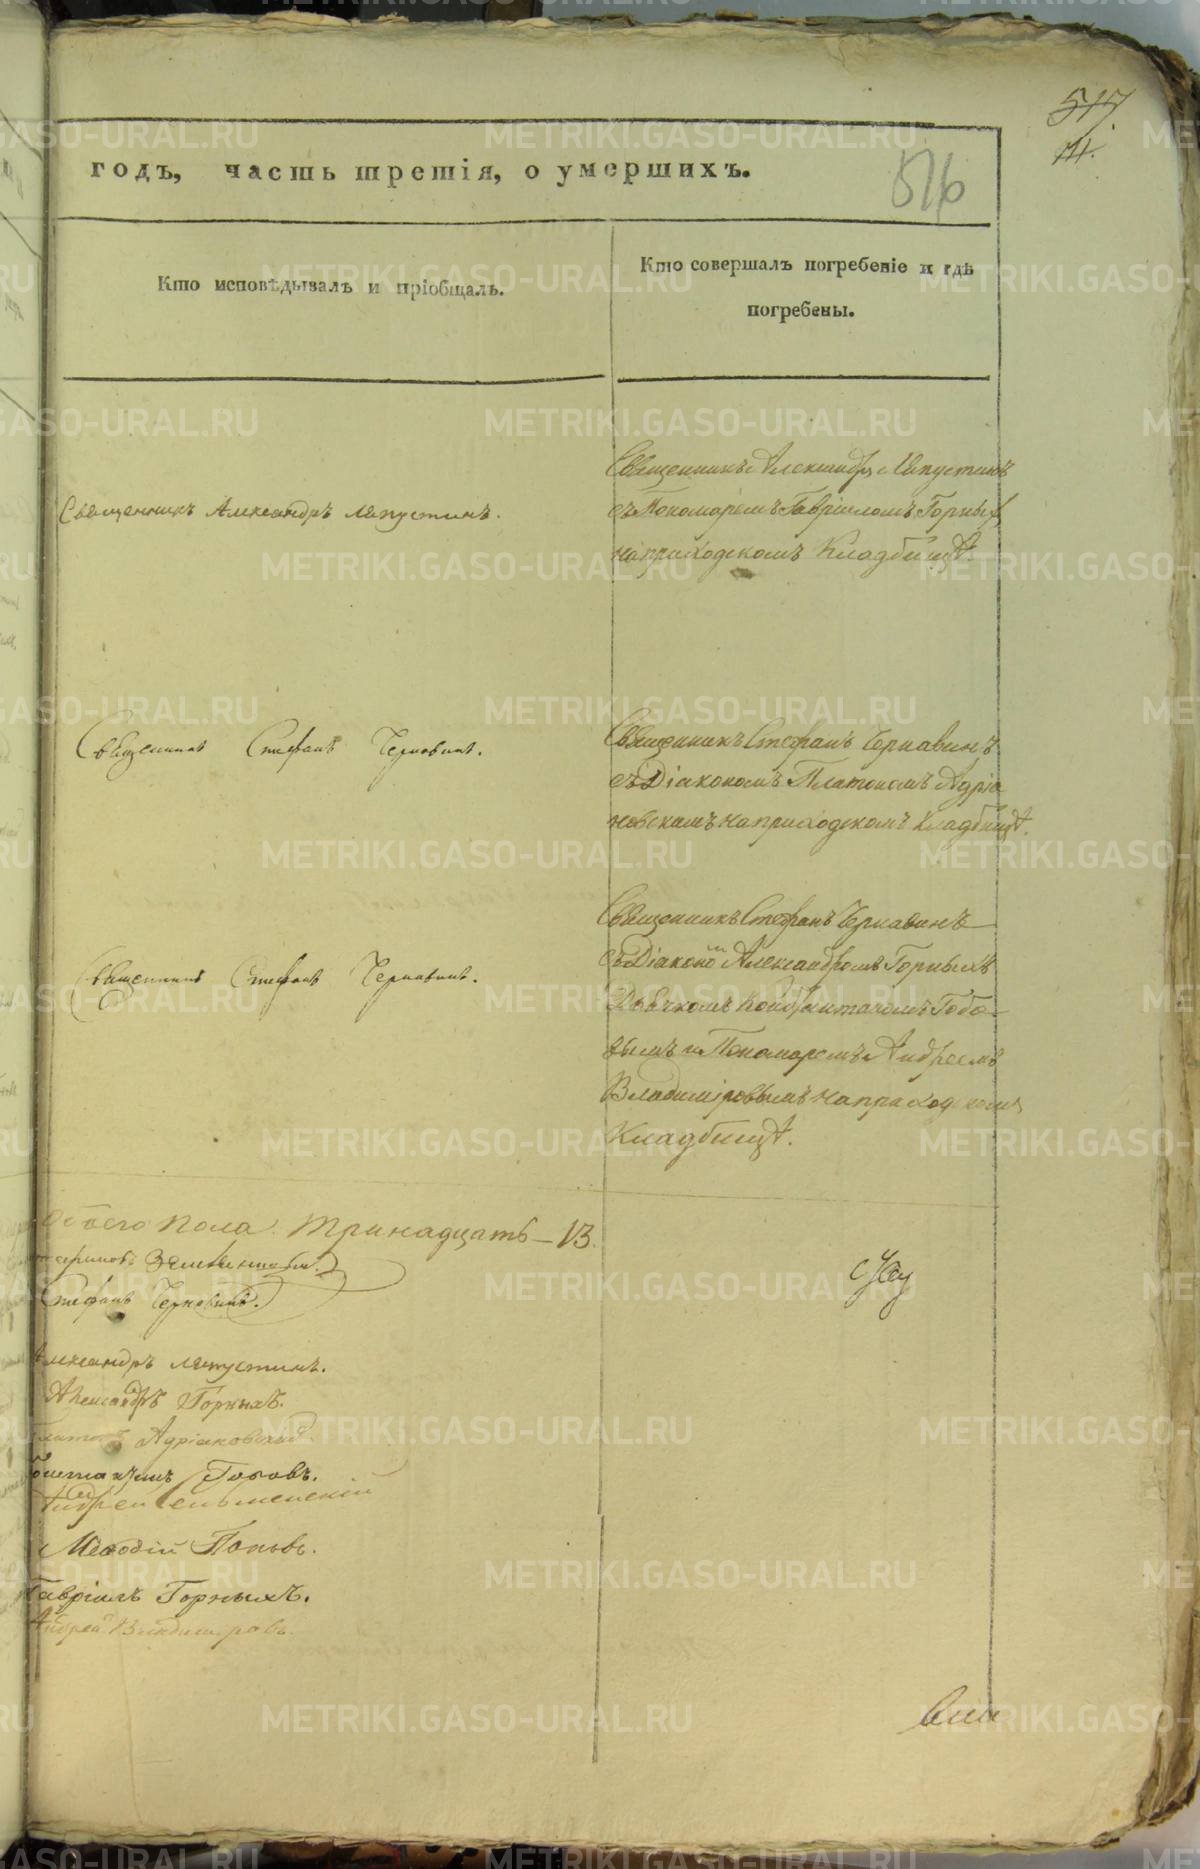 517.
14.
516
годъ, часть третія, о умершихъ.
Кто исповѣдывалъ и пріобщалъ.
Кто совершалъ погребеніе и гдѣ
погребены.
Священникъ Александръ Ляпустинъ.
Священникъ Александръ Ляпустинъ
съ Пономаремъ Гавріиломъ Горныхъ
на приходскомъ Кладбищѣ.
Священникъ Стефанъ Чернавинъ.
Священникъ Стефанъ Чернавинъ
съ Діакономъ Платономъ Адріа
новскимъ на приходскомъ Кладбищѣ.
Священникъ Стефанъ Чернавинъ.
Священникъ Стефанъ Чернавинъ
съ Діакономъ Александромъ Горныхъ
Дьячкомъ
вымъ и Пономаремъ Андреемъ
Владиміровымъ на приходскомъ
Кладбищѣ.
обоего пола тринадцать – 13.
Стефанъ Чернавинъ.
Александръ Ляпустинъ.
Александръ Горныхъ.
Платонъ Адріановскій
Андрей
Меѳодій Поповъ.
Гавріилъ Горныхъ.
Андрей Владиміровъ.
METRIKI.GASO-URAL.RU